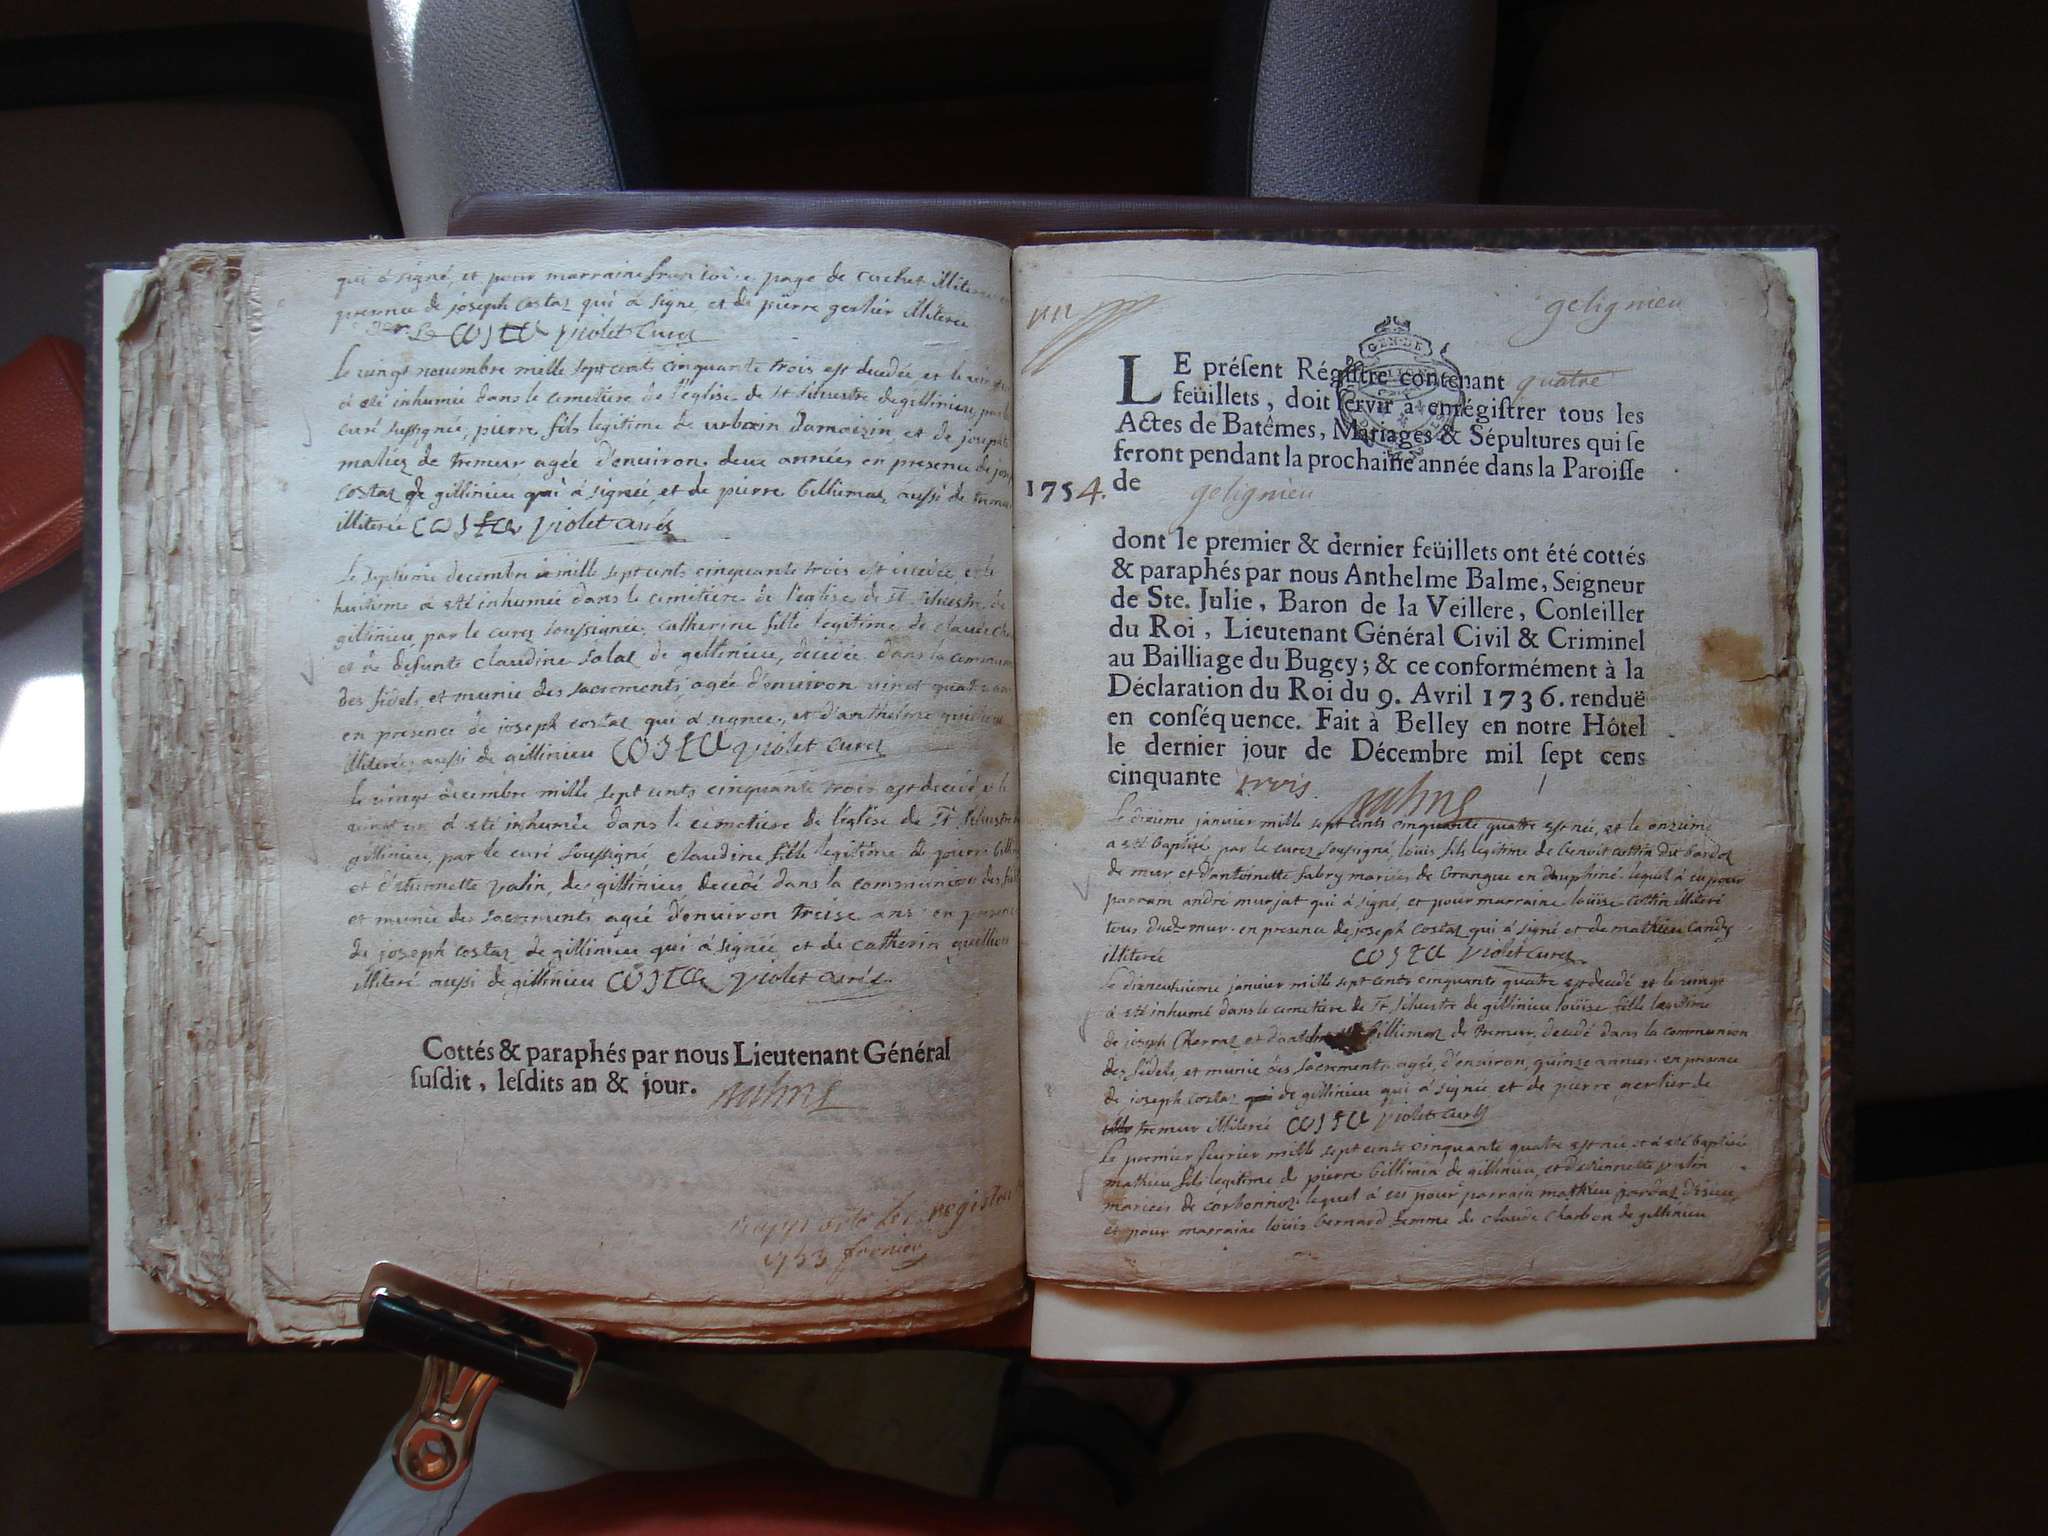 qui à signé, et pour marraine francoise page de cuchet illiteree en
presence de joseph costaz qui à signe et de pierre gerlier illiteree
COSTA violet curez
Le vingt novembre mille sept cents cinquante trois est decedée et le
à eté inhumée dans le cemetiere de l'eglise de st silvestre de gillinieu, par le
curé sussignée, pierre fils legitime de urbain damoizin, et de josephte
mariez de tremur agée d'environ deux années en presence de
costaz de gillinieu qui à signée et de pierre billiemaz aussi de tremur
illiterée COSTA violet curéz
Le septieme decembre mille sept cents cinquante trois est decedée et le
huitieme à eté inhumée dans le cemetiere de l'eglise de st silvestre de
gillinieu par le curez soussignée, catherine fille legitime de claude
et de defunte claudine salaz de gillinieu, decedée dans la communion
des fidels et munie des sacrements agée d'environ vingt quatre ans
en presence de joseph costaz qui à signée, et d'anthelme
illiteree aussi de gillinieu COSTA violet curez
le vingt decembre mille sept cents cinquante trois est decedé et le
à eté inhumée dans le cemetiere de l'eglise de st silvestre de
gillinieu, par le curé soussigné, claudine fille legitime de pierre
et d'etiennette valin, de gillinieu decedé dans la communion des
et munie des sacrements agée d'environ treise ans en presence
de joseph costaz de gillinieu qui à signée et de catherin
illiteré aussi de gillinieu COSTA violet curéz
Cottés & paraphés par nous Lieutenant Général
susdit, lesdits an & jour.
registre
1753
gelignieu
LE présent Régistre contenant quatre
feüillets, doit servir à enrégistrer tous les
Actes de Batêmes, Mariages & Sépultures qui se
feront pendant la prochaine année dans la Paroisse
1754. de gelignieu
dont le premier & dernier feüillets ont été cottés
& paraphés par nous Anthelme Balme, Seigneur
de Ste. Julie, Baron de la Veillere, Conseiller
du Roi, Lieutenant Général Civil & Criminel
au Bailliage du Bugey; & ce conformément à la
Déclaration du Roi du 9. Avril 1736. renduë
en conséquence. Fait à Belley en notre Hôtel
le dernier jour de Décembre mil sept cens
cinquante trois.
Le dixieme janvier mille sept cents cinquante quatre est née, et le onzieme
a eté baptisé par le curez soussigné, loüis fils legitime de benoit cottin du bardoz
de mur et d'antoinette fabry mariés de Crangue en dauphiné lequel à eu pour
parrain andré murjat qui à signé, et pour marraine loüise cottin illiteré
tous dudt mur en presence de joseph costaz qui à signé et de mathieu candy
illiterée COSTA violet curez
Le dixneuvieme janvier mille sept cents cinquante quatre est decedé et le vingt
à eté inhumé dans le cemetiere de st silvestre de gillinieu loüise fille legitime
de joseph Cherraz et billiemaz de tremur, decedé dans la communion
des fidels, et munie des sacrements agée d'environ quinze années en presence
de joseph costaz de gillinieu qui à signée et de pierre gerlier de
tremur illiterée COSTA violet curéz
Le premier fevrier mille sept cents cinquante quatre est née et à eté baptisée
mathieu fils legitime de pierre billimin de gillinieu, et d'etiennette valin
mariees de corbonnoz lequel à eu pour parrain mathieu jordaz
et pour marraine loüis bernard femme de claude charbon de gillinieu